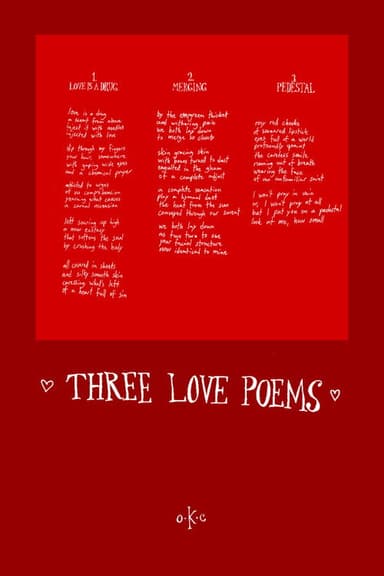 1.
LOVE IS A DRUG
love is a drug
a beast from above
inject it with needles
injected with love
slip through my fingers
your hair, somewhere
with gaping wide eyes
and a chemical prayer
addicted to urges
of no comprehension
yearning what causes
a carnal ascension
left soaring up high
a new ecstasy
that softens the soul
by crushing the body
all covered in sheets
and silky smooth skin
caressing what's left
of a heart full of sin
2.
MERGING
by the evergreen thicket
and withering pain
we both lay down
to merge as clouds
skin grazing skin
with bones turned to dust
enveloped in the gleam
of a complete
a complete sensation
play a hymnal last
the heat from the sun
conveyed through our sweat
we both lay down
as two turn to one
your facial structure
now identical to mine
3.
PEDESTAL
rosy red cheeks
of smeared lipstick
eyes full of a world
profoundly
the careless smile
running out of breath
wearing the face
of an unfamiliar saint
I won't pray in vain
or, I won't pray at all
but I put you on a pedestal
look at me, how small
THREE LOVE POEMS
o·k·c